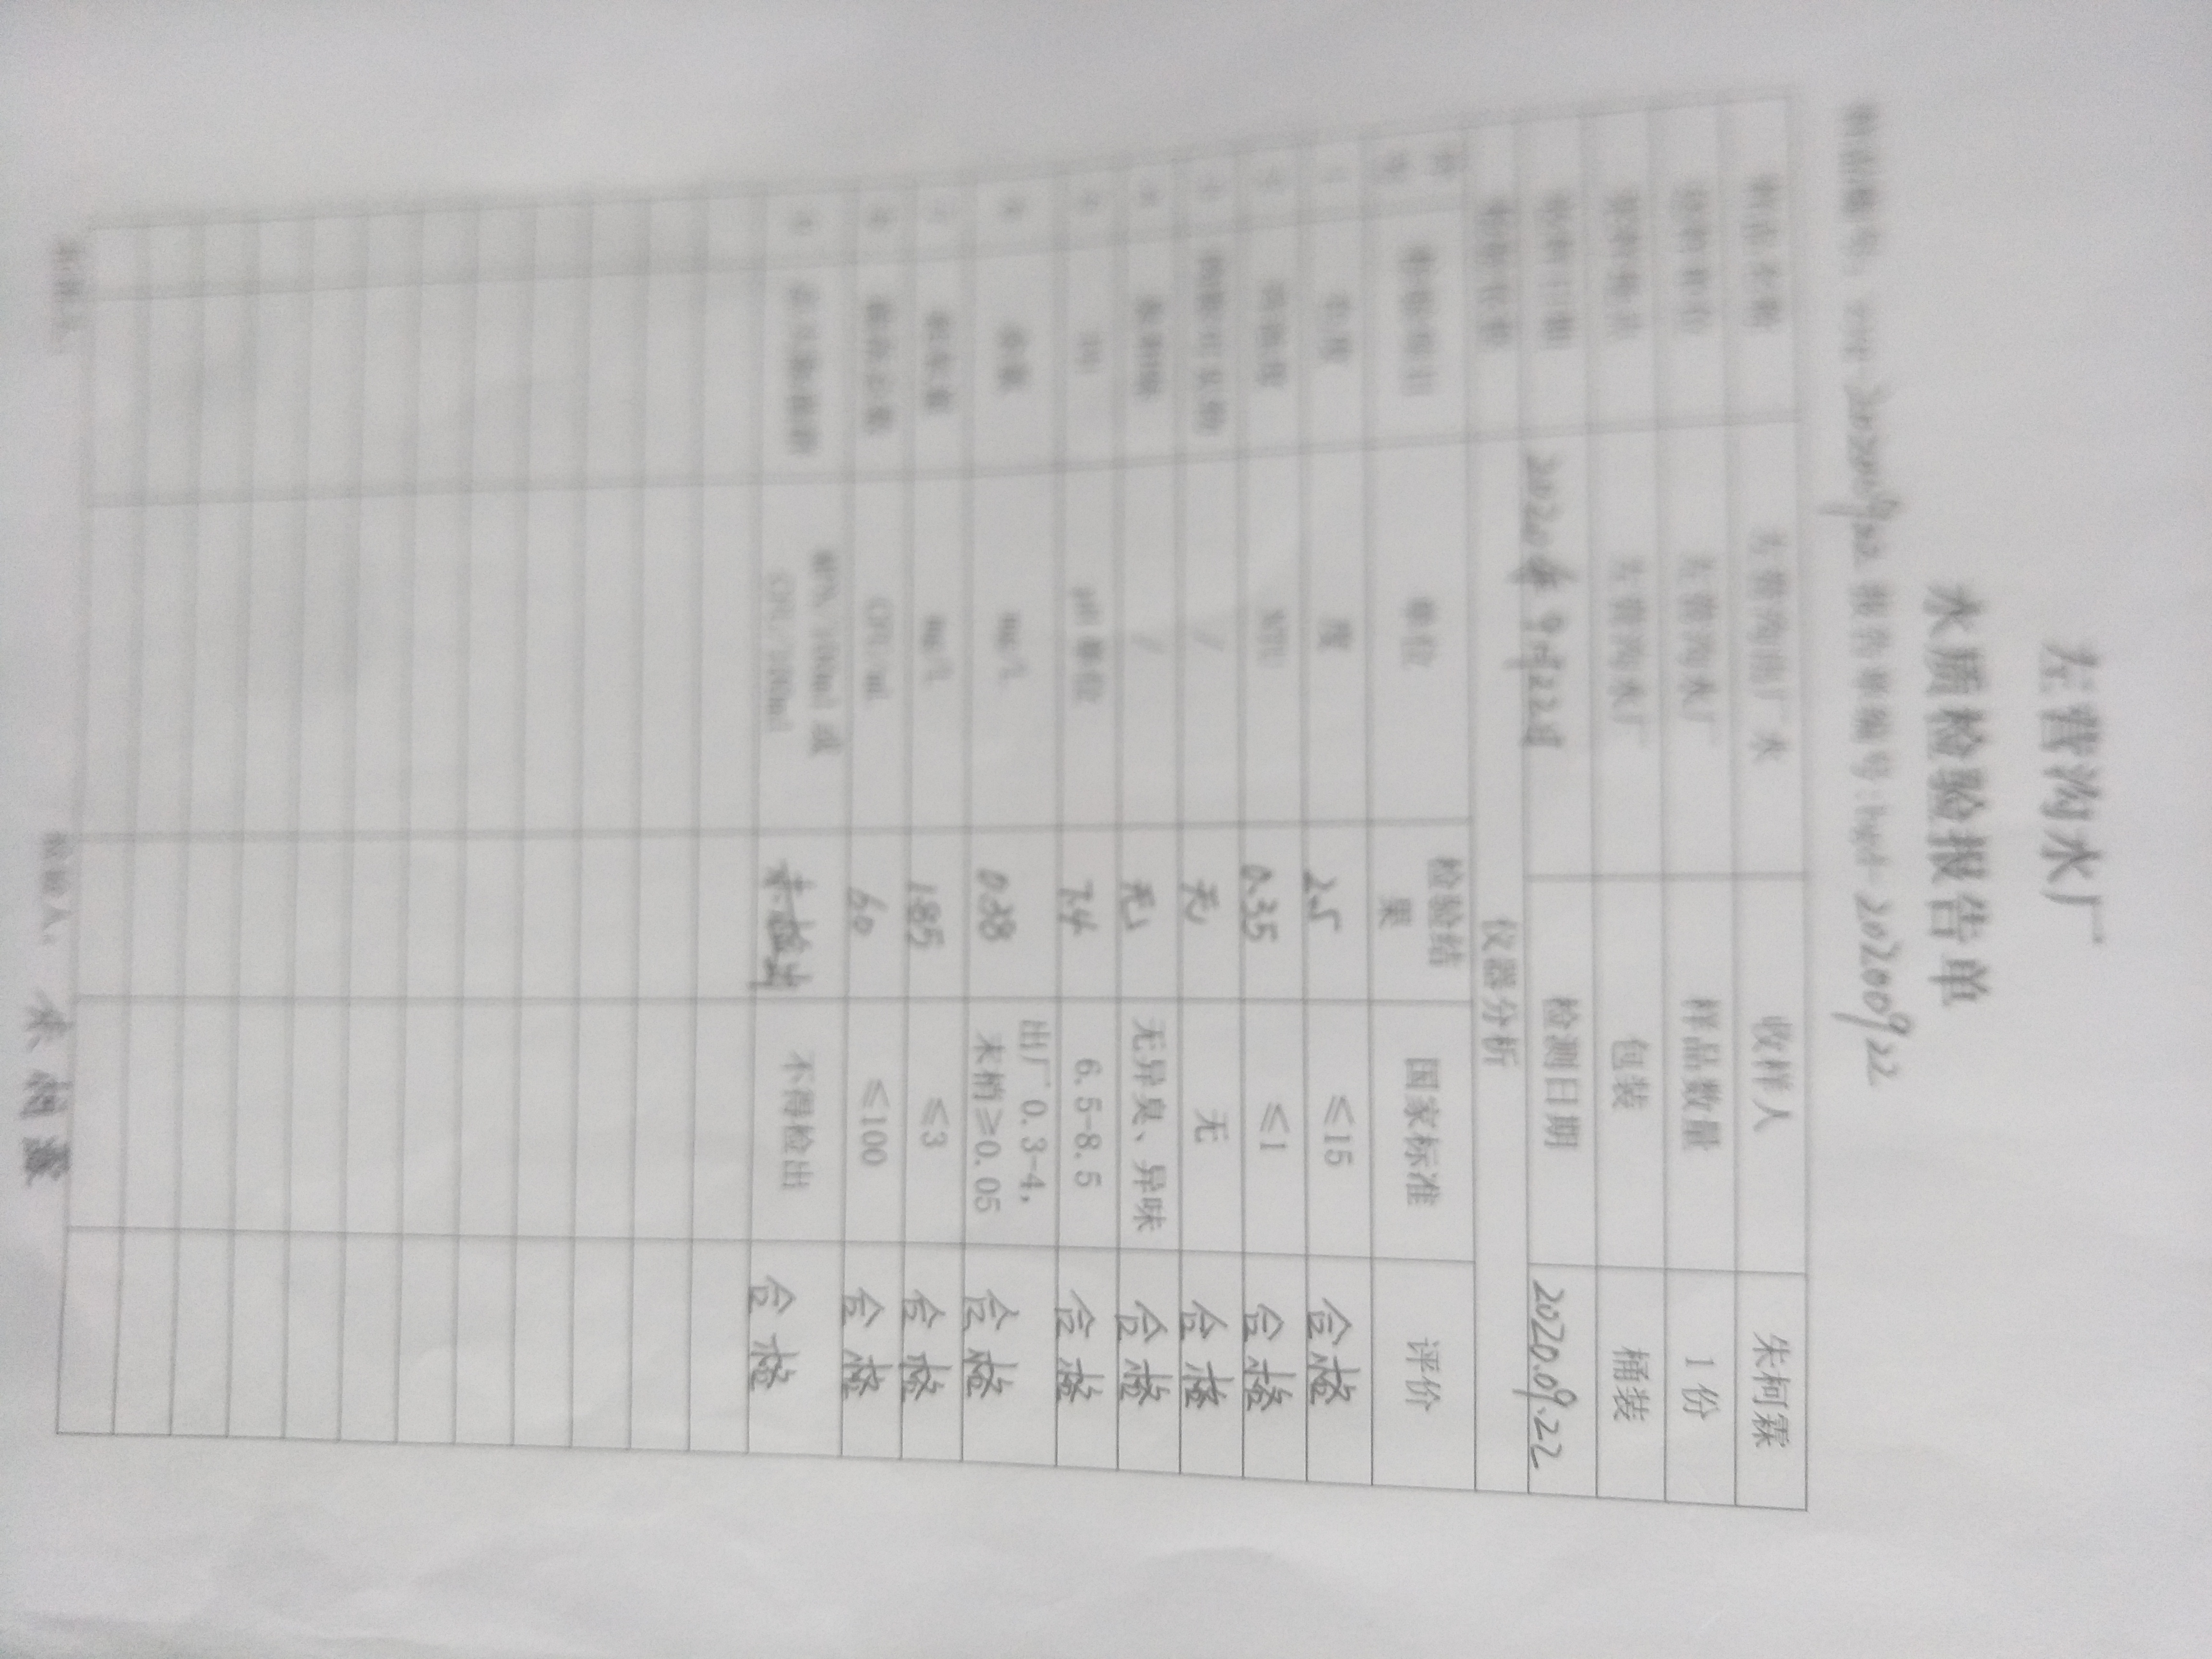 左营沟水厂
水质检验报告单
样品编号: 20200922 报告单编号: bgd-20200922
样品名称 左营沟出厂水 收样人 朱柯霖
左营沟水厂 样品数量 1份
左营沟水厂 包装 桶装
2020年9月22日 检测日期 2020.09.22
仪器分析
检验项目 单位 检验结果 国家标准 评价
色度 度 2.5 ≤15 合格
浑浊度 NTU 0.35 ≤1 合格
肉眼可见物 / 无 无 合格
臭和味 / 无 无异臭、异味 合格
pH pH单位 7.4 6.5-8.5 合格
余氯 mg/L 0.38 出厂0.3-4,
末梢≥0.05 合格
耗氧量 mg/L 1.85 ≤3 合格
菌落总数 CFU/ml 60 ≤100 合格
总大肠菌群 MPN/100ml或
CFU/100ml 未检出 不得检出 合格
检验人: